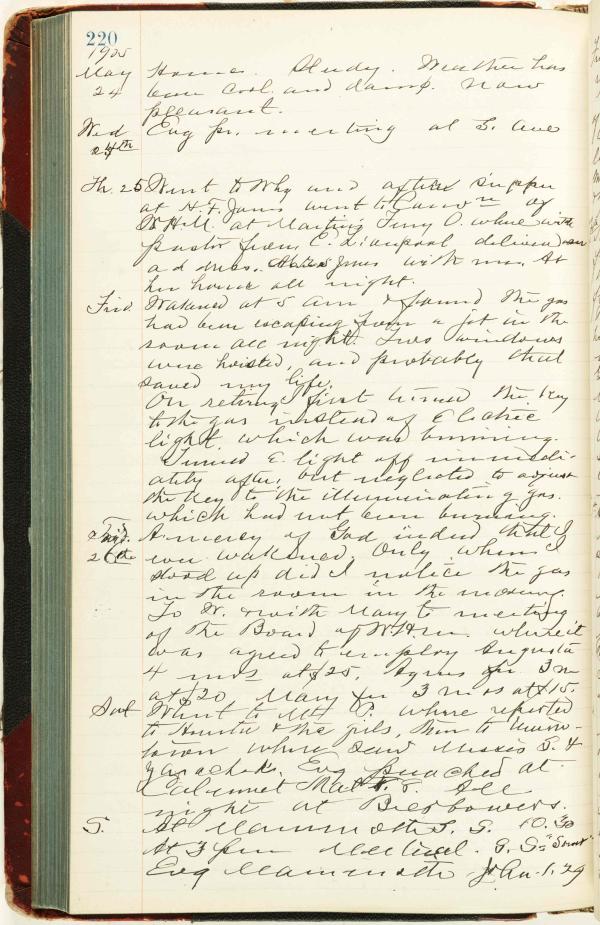 220
1905
May Home. Study. Weather has
24 been cool and damp. Now
pleasant.
Wed Evg pr. meeting at S. Ave
24th
Th. 25 Went to Whg and after supper
at H. F. Jones went to
W H M. at Martins Ferry O. where
pastor from E. Liverpool delivered an
address. Jones with me. At
her house all night.
Frid. Wakened at 5 am & found the gas
had been escaping from a jet in the
room all night. Two windows
were hoisted, and probably that
saved my life.
On retiring I first turned the key
to the gas instead of Electric
light which was burning.
Turned E. light off immedi-
ately after, but neglected to adjust
the key to the illuminating gas.
which had not been burning.
Frid. A mercy of God indeed that I
26th ever wakened. Only when I
stood up did I notice the gas
in the room in the morning.
To W. & with Mary to meeting
of the Board of W. H. M. where it
was agreed to employ Augusta
4 mos at $25. Agnes for 3 m
at $20 Mary for 3 mos at $15.
Sat Went to Mt P. where reported
to & the girls, then to Union-
town where saw Misses S. &
Evg preached at
Calumet All
night at Bierbowers.
S. At Mammoth S. S. 10.30
At 3 pm S. S.
Evg Mammoth Jhn. 1.29